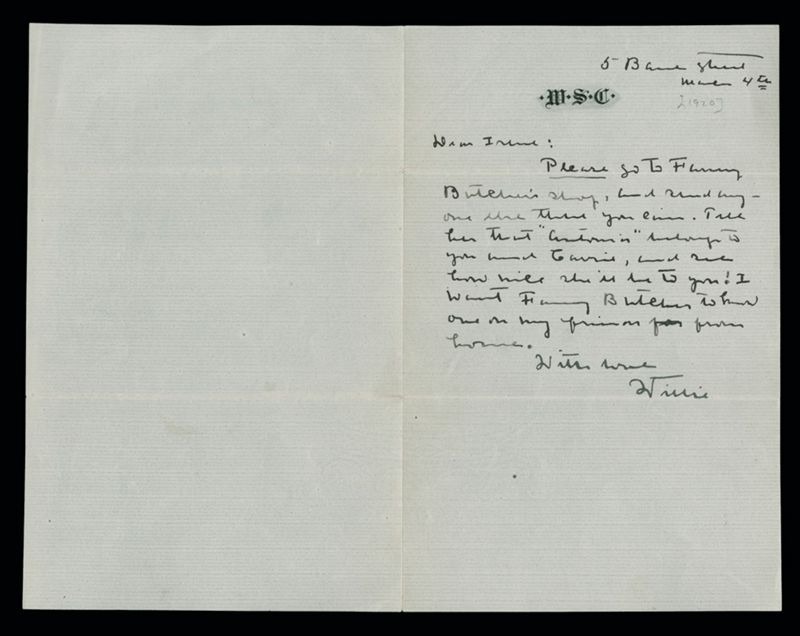 5 Bank Street
March 4th
·W·S·C·
[1920]
Dear Irene:
Please go to Fanny
Butcher's shop, and send any-
one else there you can. Tell
her that "Antonia" belongs to
you and Carrie, and see
how nice she'll be to you! I
want Fanny Butcher to know
one of my friends from
home.
With love
Willie